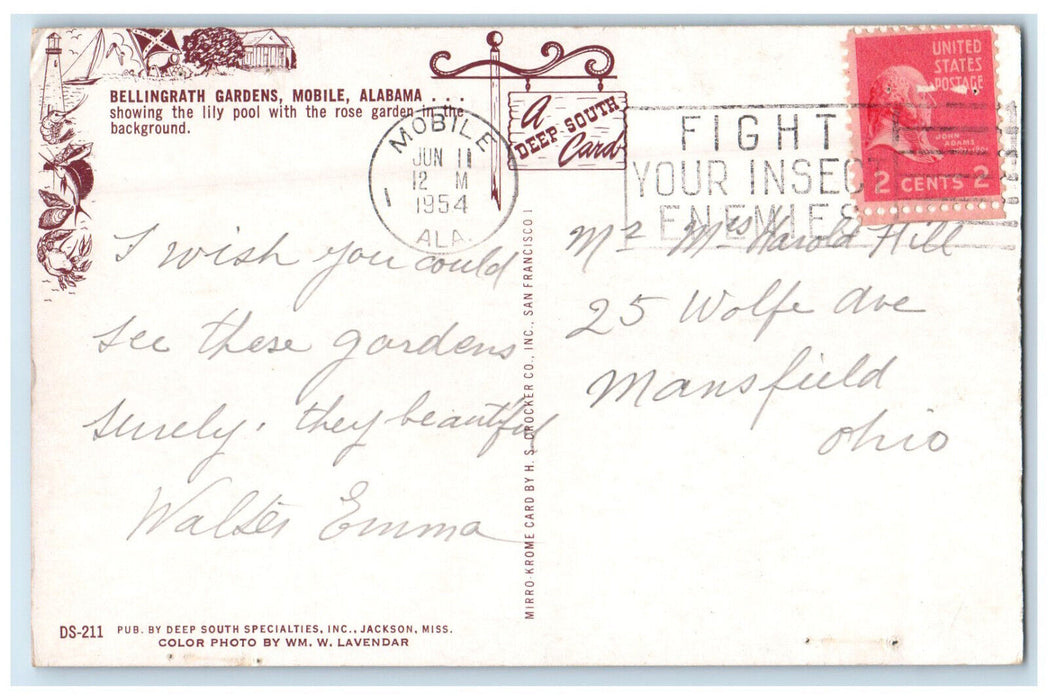 BELLINGRATH GARDENS, MOBILE, ALABAMA . . .
showing the lily pool with the rose garden in the
background.
A
DEEP SOUTH
Card
MOBILE
JUN 11
12 M
1954
ALA.
1
FIGHT
YOUR INSECT
ENEMIES
UNITED
STATES
POSTAGE
JOHN
ADAMS
2 CENTS 2
I wish you could
see these gardens
surely. they beautiful
Walter Emma
Mr Mrs Harold Hill
25 Wolfe Ave
Mansfield
Ohio
MIRRO-KROME CARD BY H. S. CROCKER CO., INC., SAN FRANCISCO 1
DS-211 PUB. BY DEEP SOUTH SPECIALTIES, INC., JACKSON, MISS.
COLOR PHOTO BY WM. W. LAVENDAR